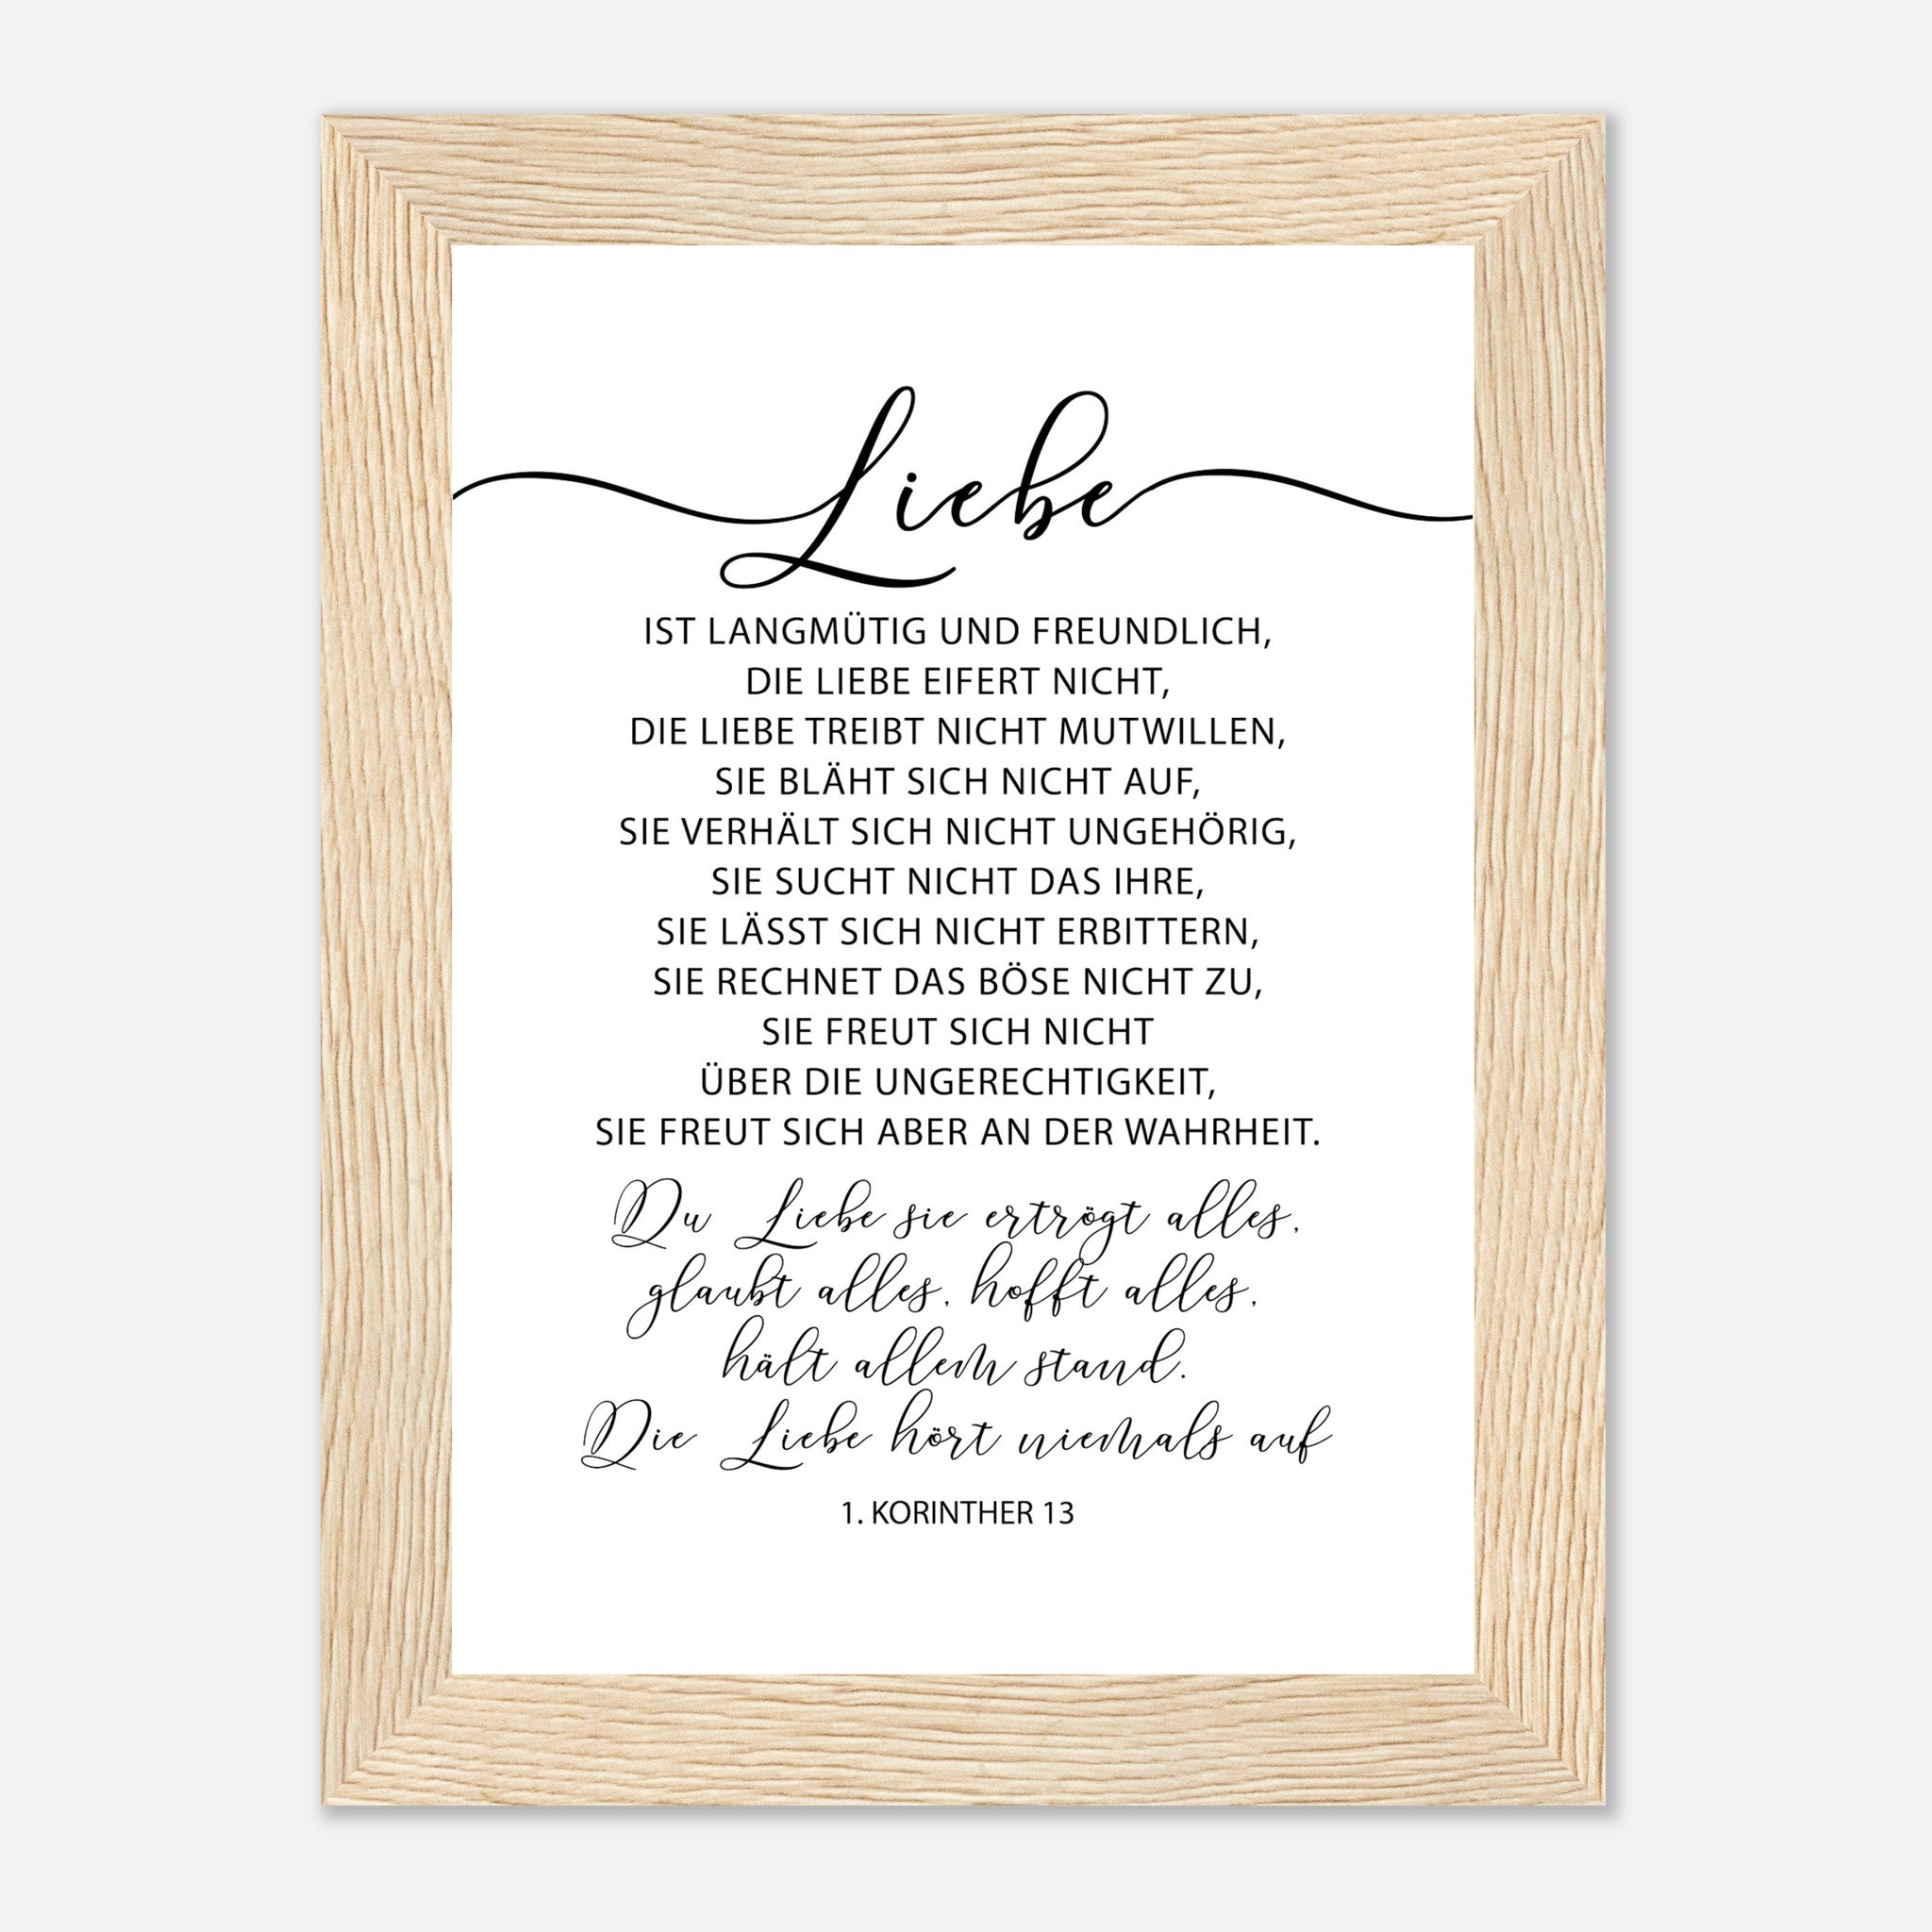 Liebe
IST LANGMÜTIG UND FREUNDLICH,
DIE LIEBE EIFERT NICHT,
DIE LIEBE TREIBT NICHT MUTWILLEN,
SIE BLÄHT SICH NICHT AUF,
SIE VERHÄLT SICH NICHT UNGEHÖRIG,
SIE SUCHT NICHT DAS IHRE,
SIE LÄSST SICH NICHT ERBITTERN,
SIE RECHNET DAS BÖSE NICHT ZU,
SIE FREUT SICH NICHT
ÜBER DIE UNGERECHTIGKEIT,
SIE FREUT SICH ABER AN DER WAHRHEIT.
Du Liebe sie ertrögt alles,
glaubt alles, hofft alles,
hält allem stand.
Die Liebe hört niemals auf
1. KORINTHER 13